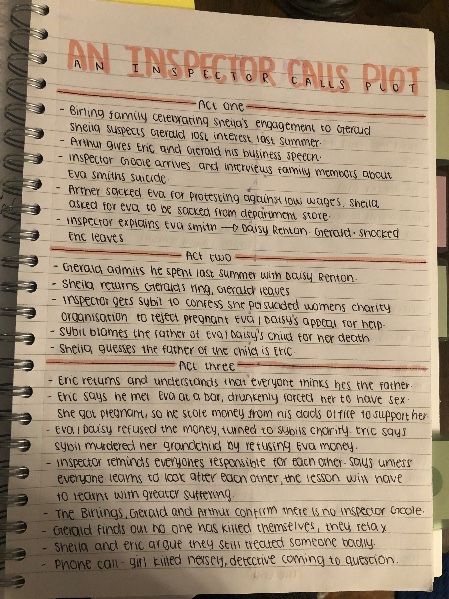 AN INSPECTOR CALLS PLOT
AN INSPECTOR CALLS PLOT
Act one
- Birling family celebrating Sheila's engagement to Gerald
Sheila suspects Gerald lost interest last summer.
- Arthur gives Eric and Gerald his business speech.
- Inspector Goole arrives and interviews family members about
Eva Smiths suicide.
- Arther sacked Eva for protesting against low wages, Sheila
asked for eva to be sacked from department store.
- Inspector explains Eva Smith → Daisy Renton. Gerald - shocked
Eric leaves
Act two
- Gerald admits he spent last summer with Daisy Renton.
- Sheila returns Geralds ring, Gerald leaves
- Inspector gets Sybil to confess she persuaded womens charity
organisation to reject pregnant Eva / Daisy's appeal for help.
- Sybil blames the father of Eva / Daisy's child for her death
- Sheila guesses the father of the child is Eric.
Act three
- Eric returns and understands that everyone thinks hes the father.
- Eric says he met Eva at a bar, drunkenly forced her to have sex.
She got pregnant, so he stole money from his dads office to support her
Eva / Daisy refused the money, turned to Sybils charity. Eric says
Sybil murdered her grandchild by refusing Eva money.
- Inspector reminds everyones responsible for each other. Says unless
everyone learns to look after each other, the lesson will have
to learnt with greater suffering.
- The Birlings, Gerald and Arthur confirm there is no inspector Goole.
Gerald finds out no one has killed themselves, they relax
- Sheila and Eric argue they still treated someone badly.
- Phone call - girl killed herself, detective coming to question.